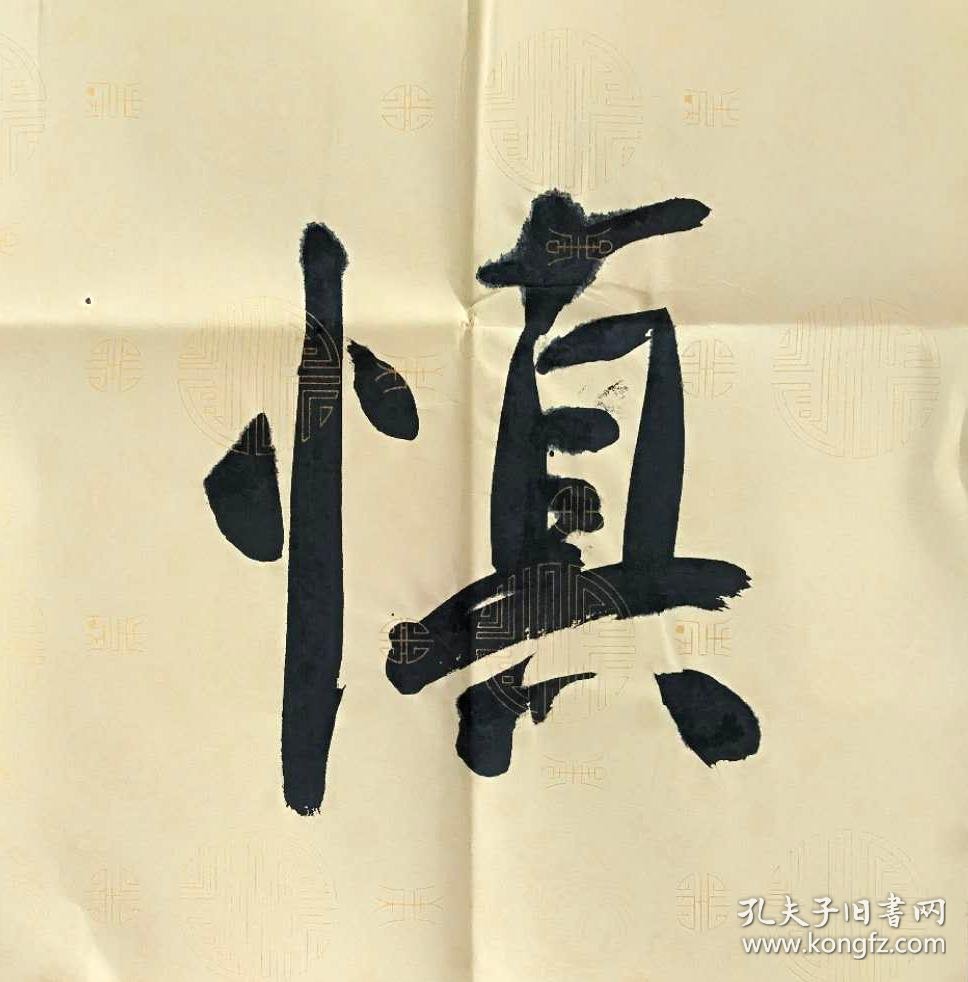 慎
孔夫子旧書网
www.kongfz.com